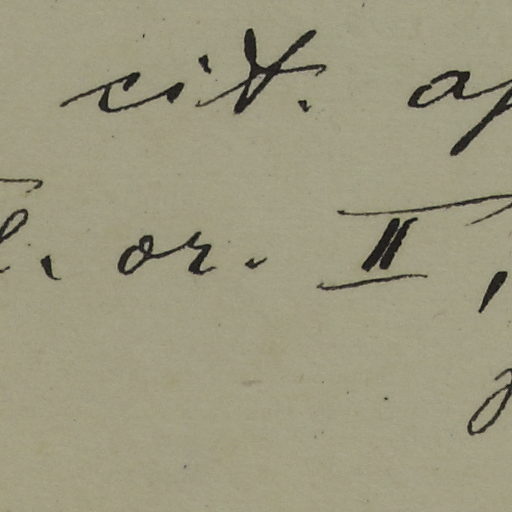 cit. ap
l. or. II,